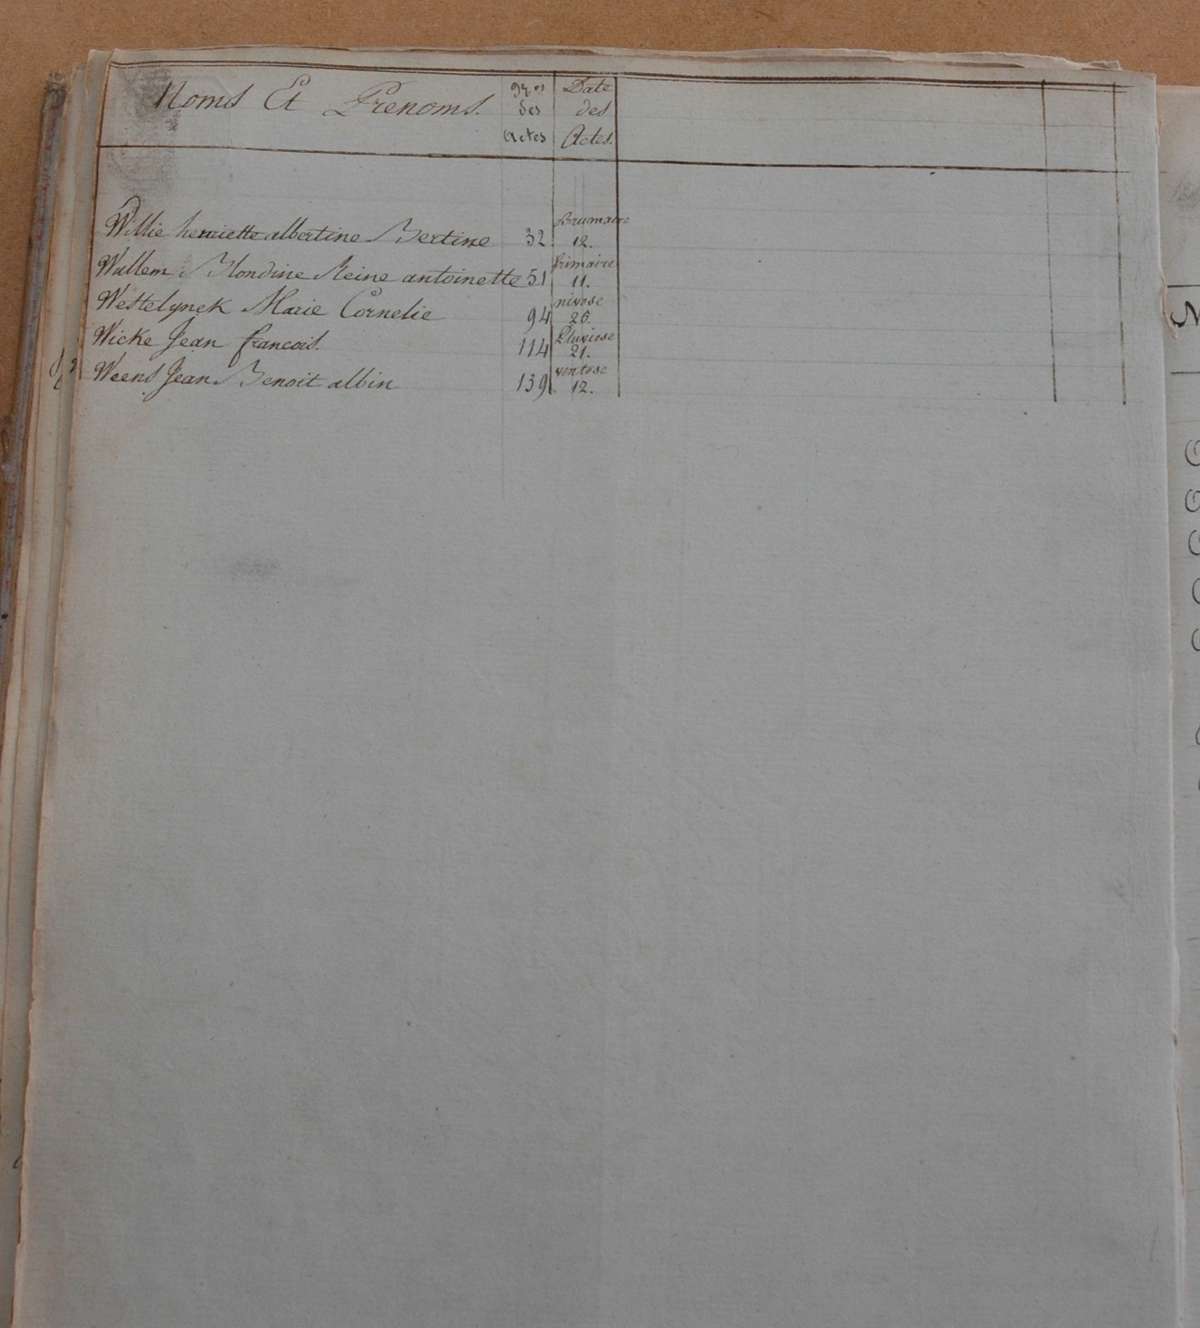 Noms Et Prenoms. Nros des Actes Date des Actes.
Willie henriette albertine Bertine 32 Brumaire 12.
Wallem Blondine Reine antoinette 51 frimaire 11.
Westelynck Marie Cornelie 94 nivose 26.
Wicke Jean francois. 114 Pluviose 21.
Weens Jean Benoit albin 139 ventose 12.